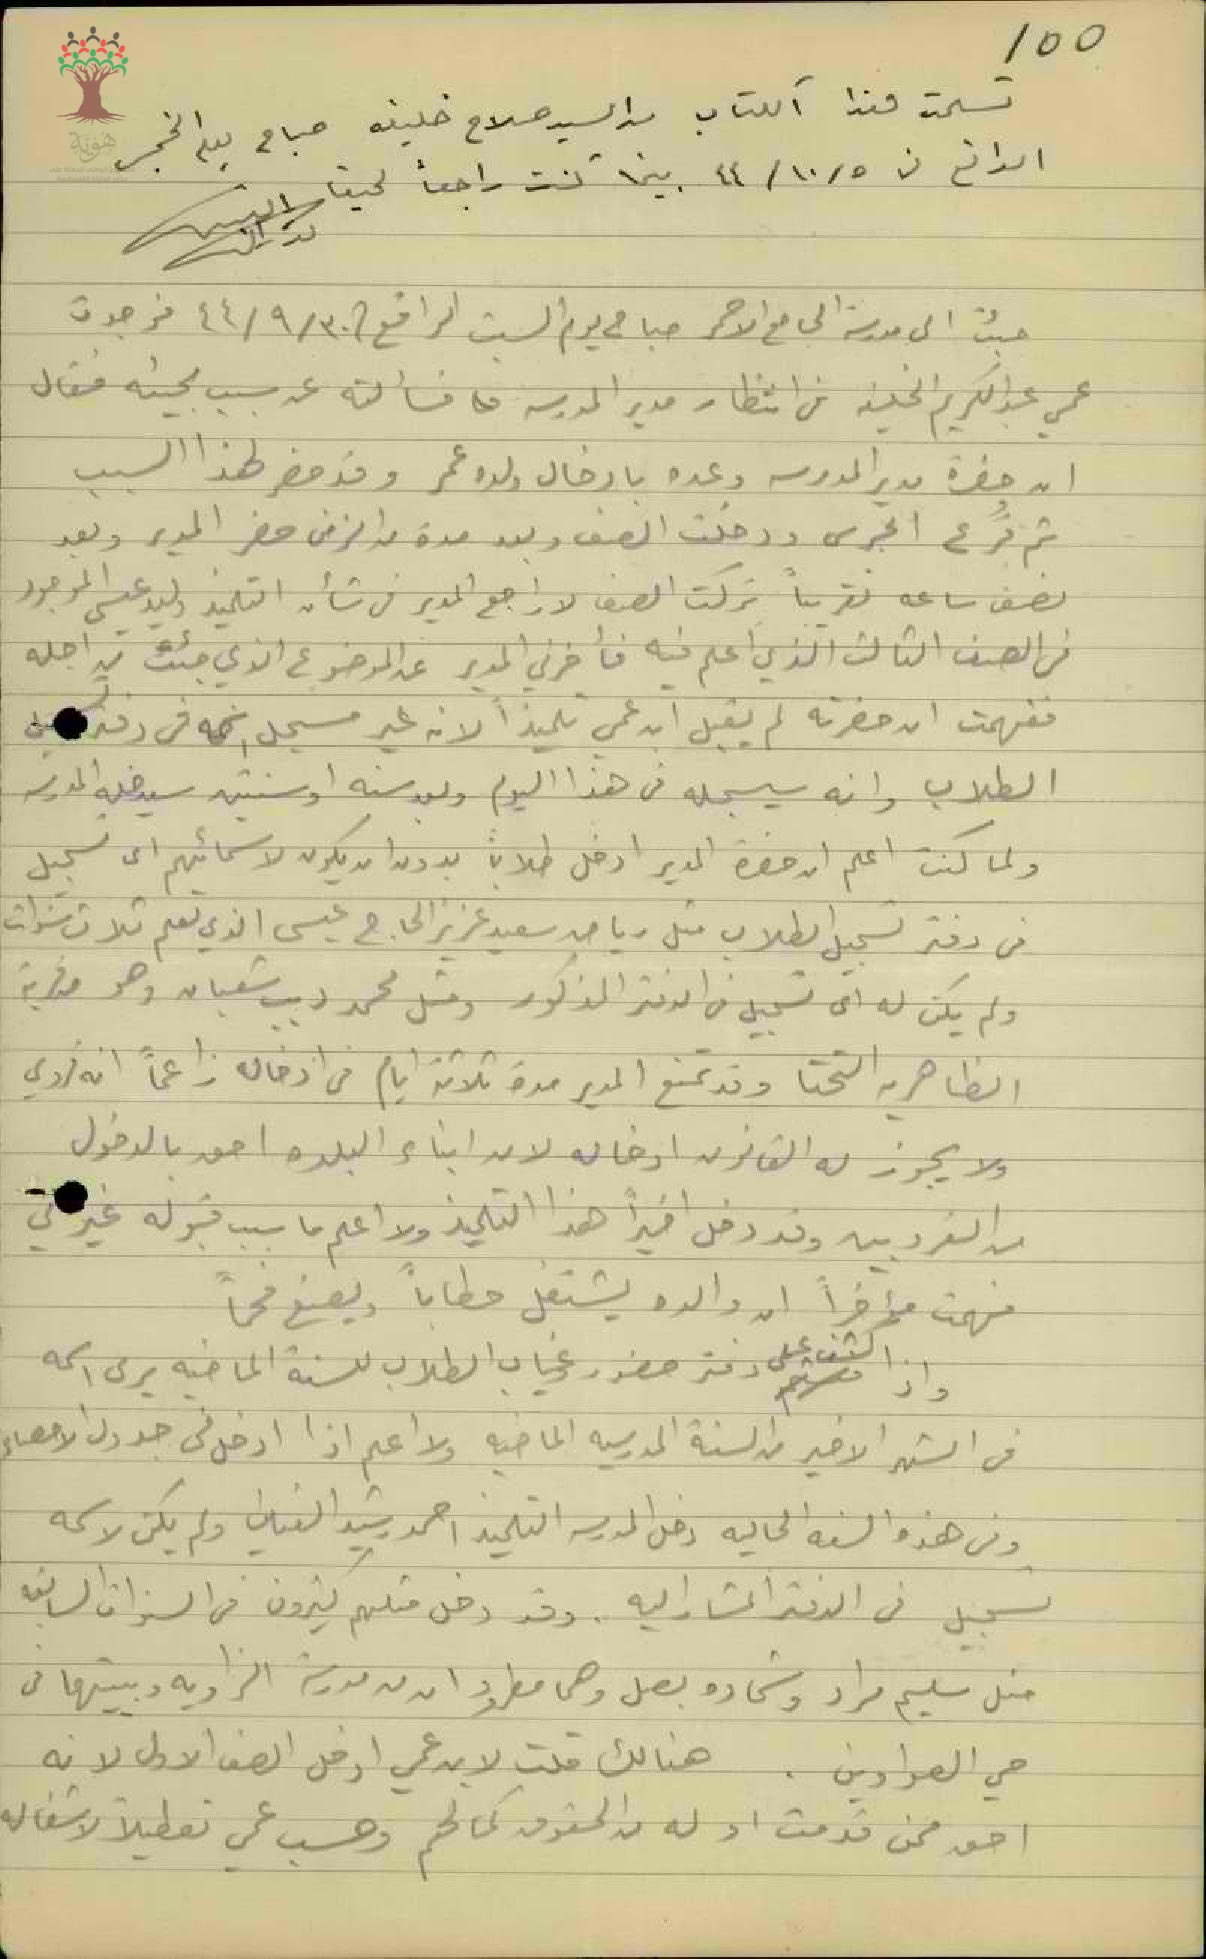 ١٥٥
تسلمت هذا الكتاب من السيد صلاح خليفه صباح يوم الخميس
الواقع في ٤٤/١٠/٥ بينما كنت راجعاً
هوية
جئت الى مدرسة الجامع الاحمر صباح يوم السبت الواقع في ٤٤/٩/٣٠ فوجدت
عمي عبد الكريم الخليفه في انتظار مدير المدرسه فسألته عن سبب مجيئه فقال
ان حضرة مدير المدرسه وعده بادخال ولده عمر وقد حضر لهذا السبب
ثم قُرع الجرس ودخلت الصف وبعد مدة من الزمن حضر المدير وبعد
نصف ساعه تقريباً تركت الصف لاراجع المدير في شأن التلميذ وليد عيسى الموجود
في الصف الثالث الذي اعلم فيه فأخبرني المدير عن الموضوع الذي جئت من اجله
ففهمت ان حضرته لم يقبل ابن عمي تلميذاً لانه غير مسجل اسمه في دفتر تسجيل
الطلاب وانه سيسجله في هذا اليوم وبعد سنه او سنتين سيدخله المدرسه
ولما كنت اعلم ان حضرة المدير ادخل طلاباً بدون ان يكون لاسمائهم اى تسجيل
في دفتر تسجيل الطلاب مثل رياض سعيد عزيز الحاج عيسى الذي تعلم ثلاث سنوات
ولم يكن له اى تسجيل في الدفتر المذكور ومثل محمد ديب شعبان وهو من قرية
الظاهريه التحتا وقد تمنع المدير مدة ثلاثة ايام في ادخاله زاعماً انه قروي
ولا يجوز له القانون ادخاله لان ابناء البلده احق بالدخول
من القرويين وقد دخل اخيراً هذا التلميذ ولا اعلم ما سبب قبوله غير اني
فهمت مؤخراً ان والده يشتغل حطاباً ويصنع فحماً
واذا كشف على دفتر حضور وغياب الطلاب للسنة الماضيه يرى اسمه
في الشهر الاخير من السنة المدرسيه الماضيه ولا اعلم اذا ادخل في جدول الاحصاء
وفي هذه السنه الحاليه دخل المدرسه التلميذ احمد رشيد ولم يكن لاسمه
تسجيل في الدفتر المشار اليه . وقد دخل مثلهم كثيرون في السنوات السابقه
مثل سليم مراد وشحاده بصل وهما مطرودان من مدرسة الزاويه وبيتهما في
حي الصواوين . هنالك قلت لابن عمي ادخل الصف الاول لانه
احق ممن قدمت او له من الحقوق كما لهم وحسب عمي تعطيلاً لاشغاله